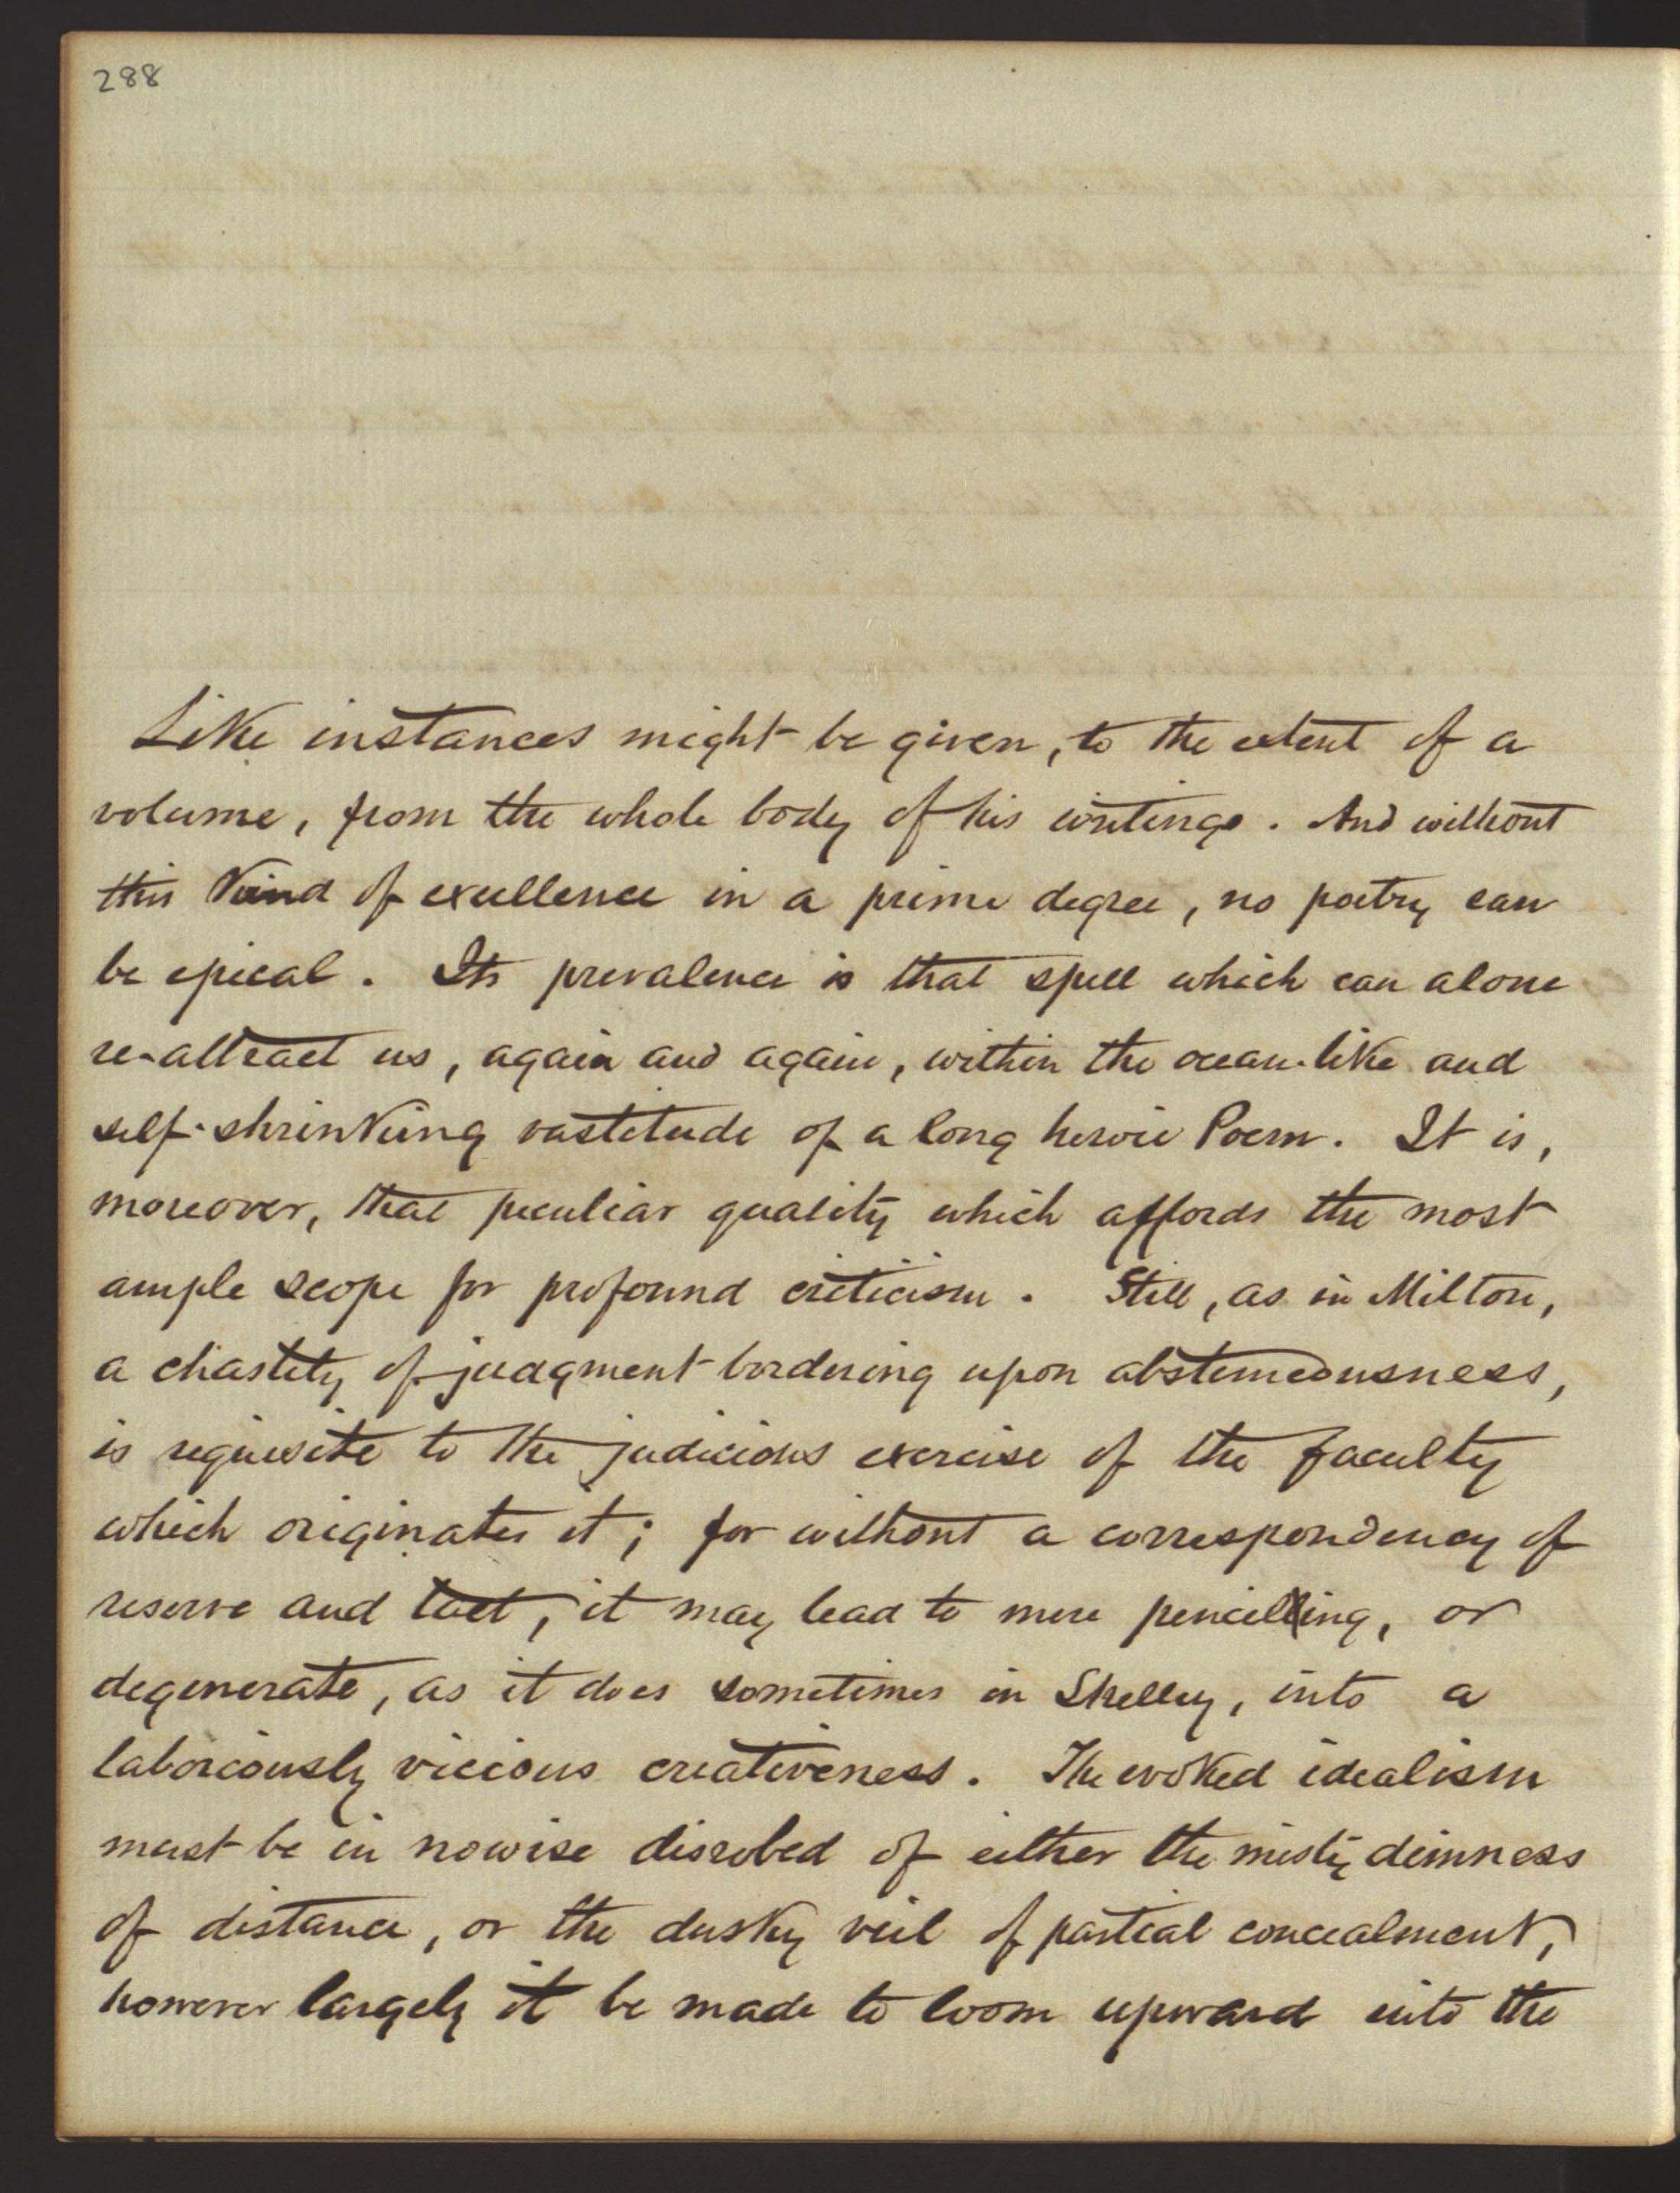 288
Like instances might be given, to the extent of a
volume, from the whole body of his writings. And without
this kind of excellence in a prime degree, no poetry can
be epical. Its prevalence is that spell which can alone
re-attract us, again and again, within the ocean-like and
self-shrinking vastitude of a long heroic Poem. It is,
moreover, that peculiar quality which affords the most
ample scope for profound criticism. Still, as in Milton,
a chastity of judgment bordering upon abstemeousness,
is requisite to the judicious exercise of the faculty
which originates it; for without a correspondency of
reserve and tact, it may lead to mere pencilling, or
degenerate, as it does sometimes in Shelley, into a
laboriously vicious creativeness. The evoked idealism
must be in nowise disrobed of either the misty dimness
of distance, or the dusky veil of partial concealment,
however largely it be made to loom upward into the